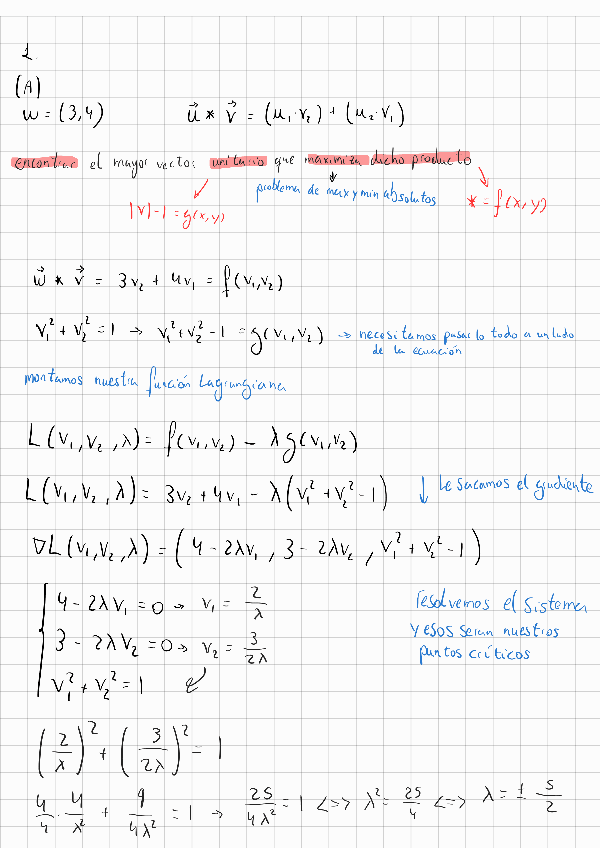 1.
(A)
w = (3,4)    u⃗ * v⃗ = (u₁·v₂) + (u₂·v₁)
encontrar el mayor vector unitario que maximiza dicho producto
problema de max y min absolutos
|v|-1 = g(x,y)    * = f(x,y)
w⃗ * v⃗ = 3v₂ + 4v₁ = f(v₁,v₂)
v₁² + v₂² = 1 → v₁² + v₂² - 1 = g(v₁,v₂) → necesitamos pasarlo todo a un lado
de la ecuación
montamos nuestra función Lagrangiana
L(v₁,v₂,λ) = f(v₁,v₂) - λg(v₁,v₂)
L(v₁,v₂,λ) = 3v₂ + 4v₁ - λ(v₁² + v₂² - 1) ↓ Le sacamos el gradiente
∇L(v₁,v₂,λ) = (4 - 2λv₁, 3 - 2λv₂, v₁² + v₂² - 1)
4 - 2λv₁ = 0 → v₁ = 2/λ    resolvemos el sistema
3 - 2λv₂ = 0 → v₂ = 3/2λ    y esos seran nuestros
v₁² + v₂² = 1    puntos críticos
(2/λ)² + (3/2λ)² = 1
4/4 · 4/λ² + 9/4λ² = 1 → 25/4λ² = 1 <=> λ² = 25/4 <=> λ = ± 5/2